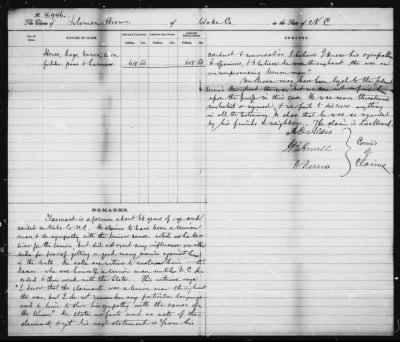 No. 4,946.
The Claim of Solomon Brown of Wake Co. in the State of N.C.
NATURE OF CLAIM.
Horse, hogs, bacon, corn,
fodder, peas & harness 618.50 618.50
REMARKS.
Claimant is a person about 64 years of age and
resided in Wake Co. N.C. He claims to have been a union
man & to sympathize with the union cause
tives for the union, but did not exert any influence on either
side for fear of getting a good many persons against him
in the battle. He calls one witness to
who was himself a union man until N.C.
ceded & then went with the State. This witness says
"I know that the claimant was a union man throughout
the war, but I do not remember any particular language
used by him to show his sympathy with the cause of
the Union." He states no facts and no acts of the
claimant, & yet his next statement is "from his
REMARKS.
conduct & conversation I believe I knew his sympathy
& opinions, & I believe he was throughout the war an
uncompromising union man."
Mr. Brown may have been loyal to the federal
throughout the war but we can not
upon the proofs in this case. He was never threatened
molested or injured, & we fail to discover anything
in all the testimony to show that he was so regarded
by his friends & neighbors. The claim is disallowed.
A.O. Aldis
J.B. Howell
O. Ferriss
Com'rs
of
Claims